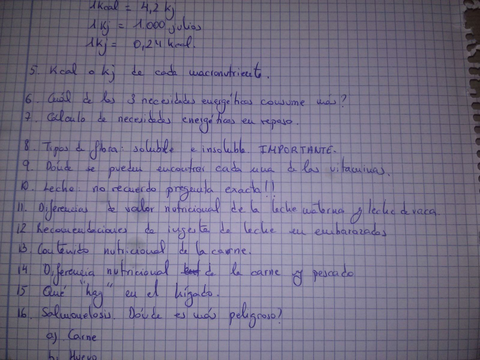 1 kcal = 4,2 kj
1 kj = 1.000 julios
1 kj = 0,24 kcal.
5. Kcal o kj de cada macronutriente.
6. Cuál de las 3 necesidades energéticas consume más?
7. Cálculo de necesidades energéticas en reposo.
8. Tipos de fibra: soluble e insoluble. IMPORTANTE.
9. Dónde se pueden encontrar cada una de las vitaminas.
10. Leche: no recuerdo pregunta exacta!!
11. Diferencias de valor nutricional de la leche materna y leche de vaca.
12. Recomendaciones de ingesta de leche en embarazadas
13. Contenido nutricional de la carne.
14. Diferencia nutricional de la carne y pescado
15. Qué "hay" en el hígado.
16. Salmonelosis. Dónde es más peligroso?
a) Carne
b) Huevo